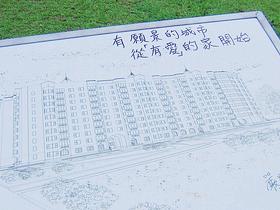 有願景的城市
從「有愛」的家開始